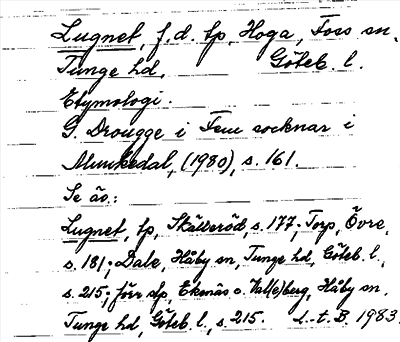 Lugnet, f.d. tp, Hoga, Foss sn,
Tunge hd, Göteb. l.
Etymologi.
G. Drougge i Fem socknar i
Munkedal, (1980), s. 161.
Se äv.:
Lugnet, tp, Skälleröd, s. 177; Torp, Övre,
s. 181; Dale, Håby sn, Tunge hd, Göteb. l.,
s. 215; förr dp, Ekenäs o. Val(e)berg, Håby sn,
Tunge hd, Göteb. l., s. 215. L.-t. B. 1983